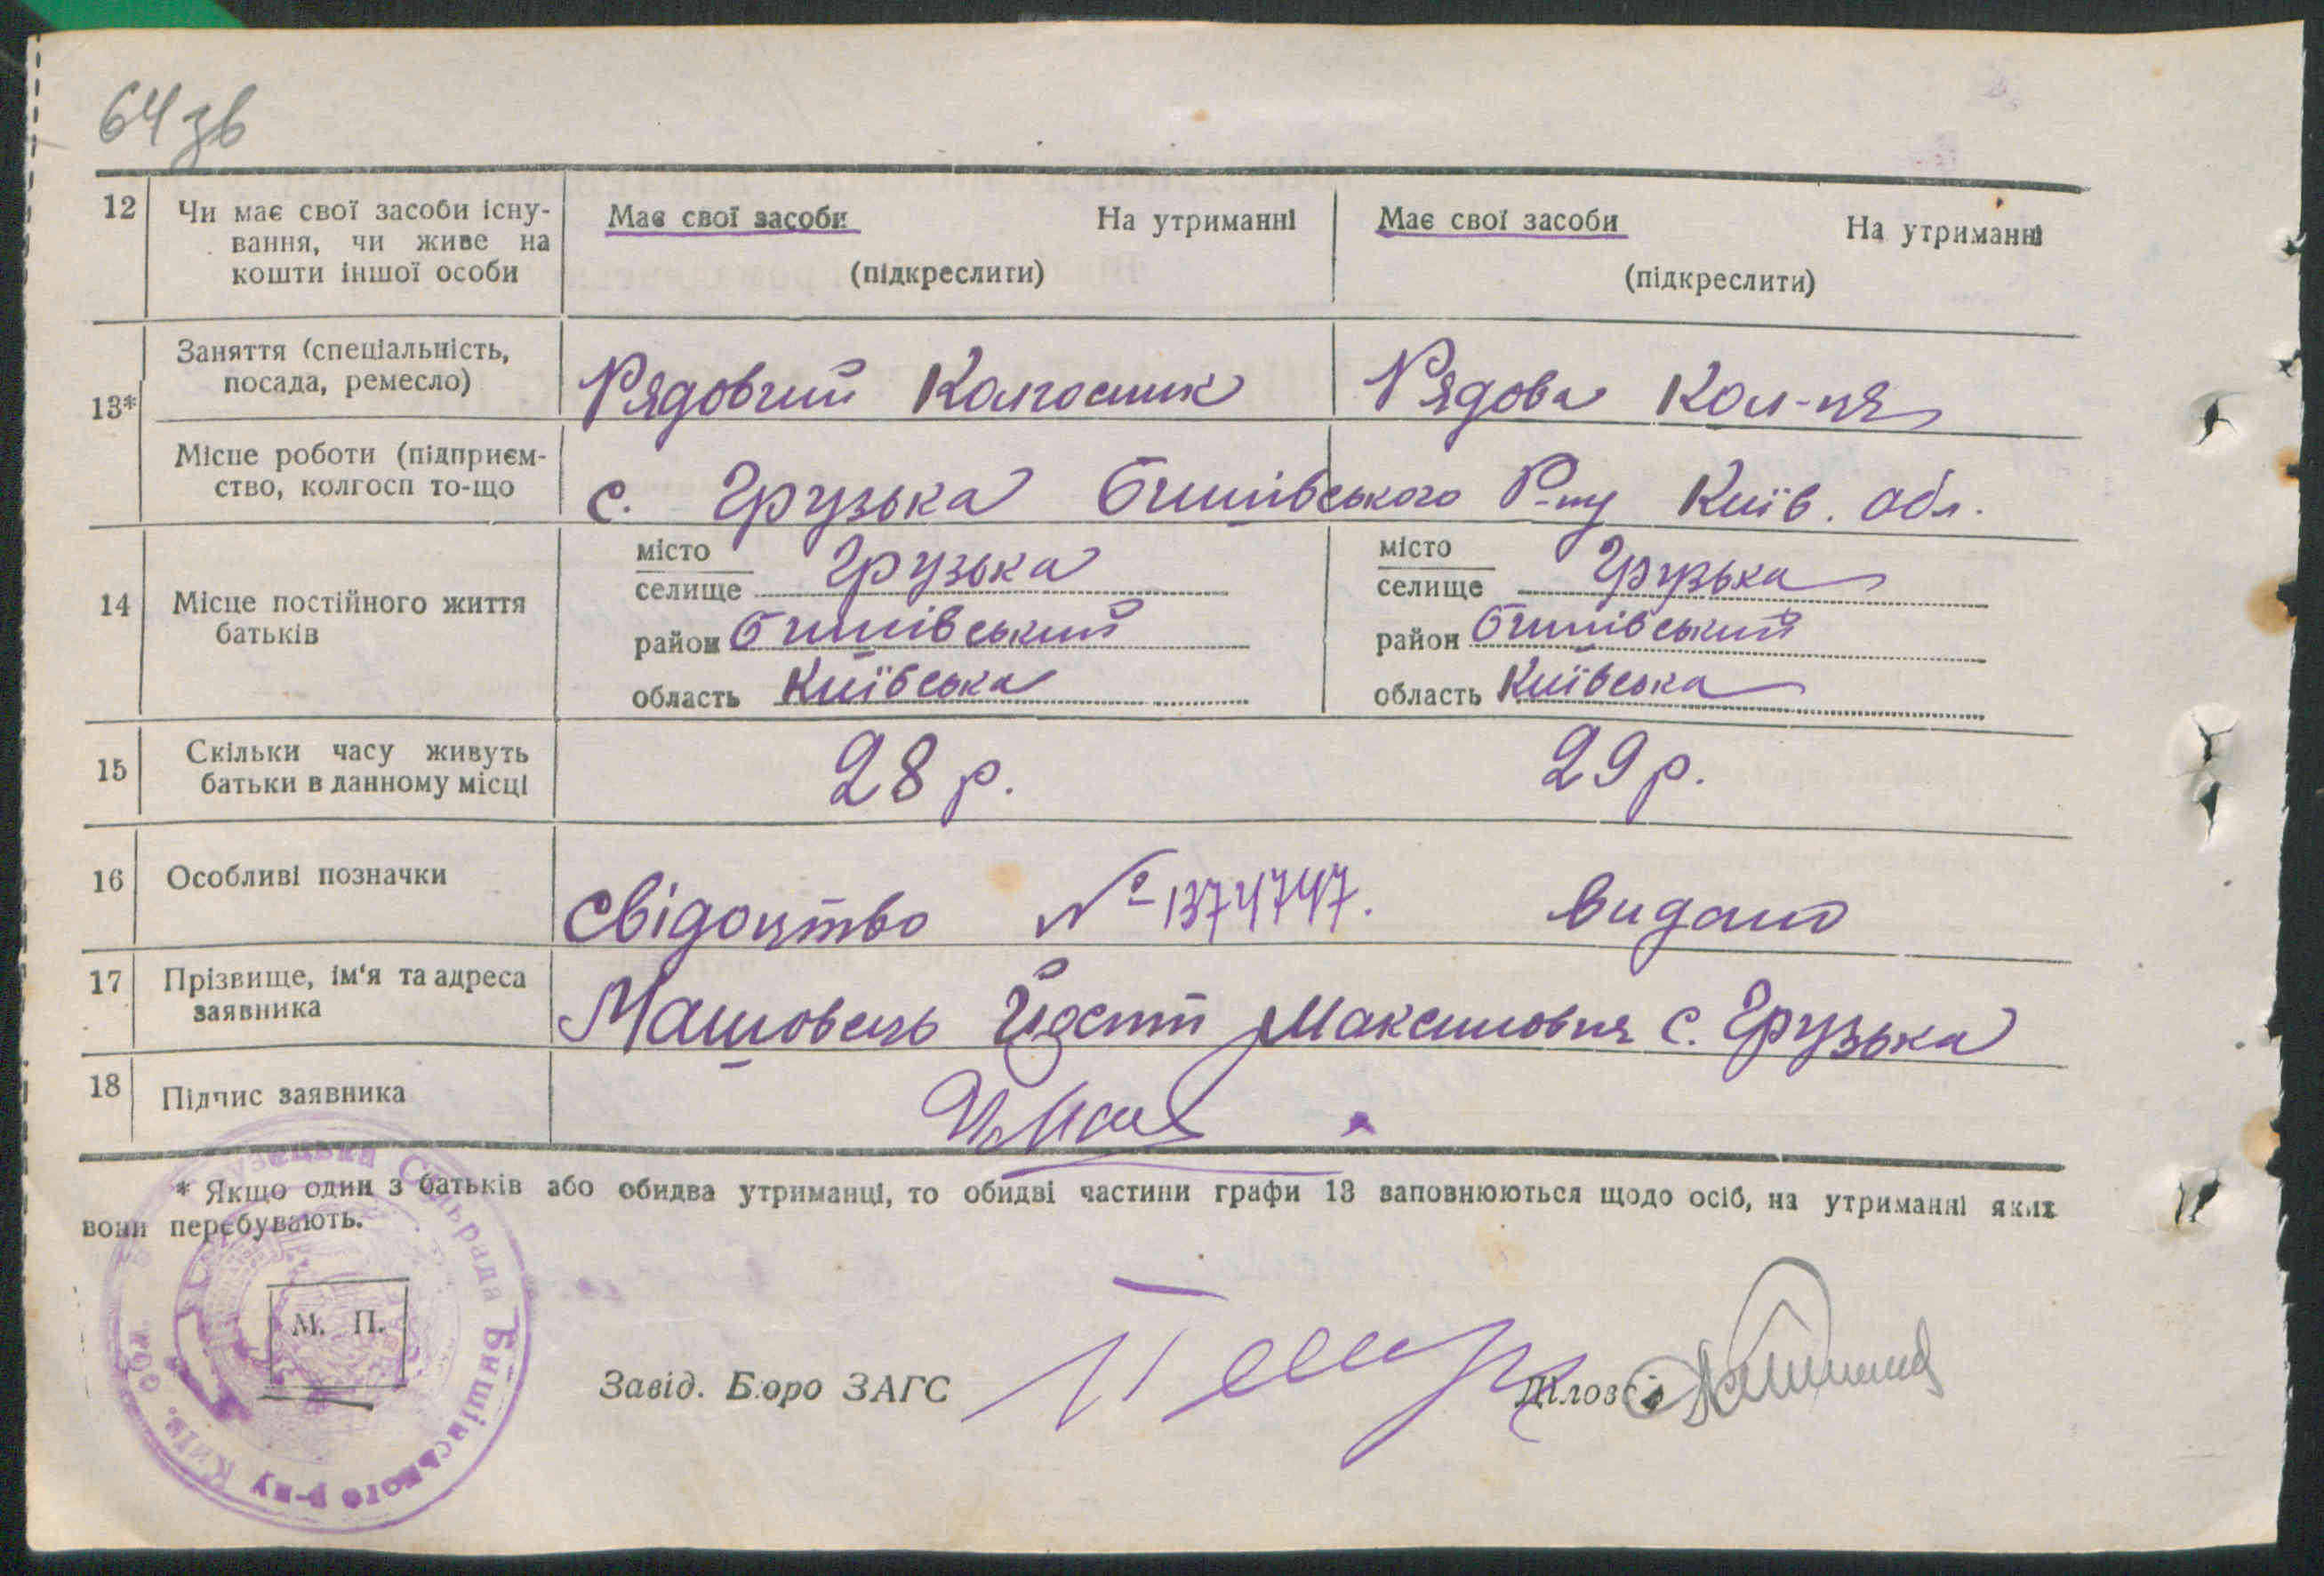 64 зв
12 Чи має свої засоби існу-
вання, чи живе на
кошти іншої особи
Має свої засоби На утриманні
(підкреслити)
Має свої засоби На утриманні
(підкреслити)
13*
Заняття (спеціальність,
посада, ремесло)
Рядовий Колгосник
Рядова Кол-ця
Місце роботи (підприєм-
ство, колгосп то-що
с. Грузька Бишівського Р-ну Київ. обл.
14 Місце постійного життя
батьків
місто
селище Грузька
район Бишівський
область Київська
місто
селище Грузька
район Бишівський
область Київська
15 Скільки часу живуть
батьки в данному місці
28 р.
29 р.
16 Особливі позначки
Свідоцтво № 1374747. видано
17 Прізвище, ім'я та адреса
заявника
Машовець Максимович с. Грузька
18 Підпис заявника
* Якщо один з батьків або обидва утриманці, то обидві частини графи 13 заповнюються щодо осіб, на утриманні яких
вони перебувають.
М. П.
Сільрада Бишівського р-ну Київ. обл.
Завід. Бюро ЗАГС
Діловод